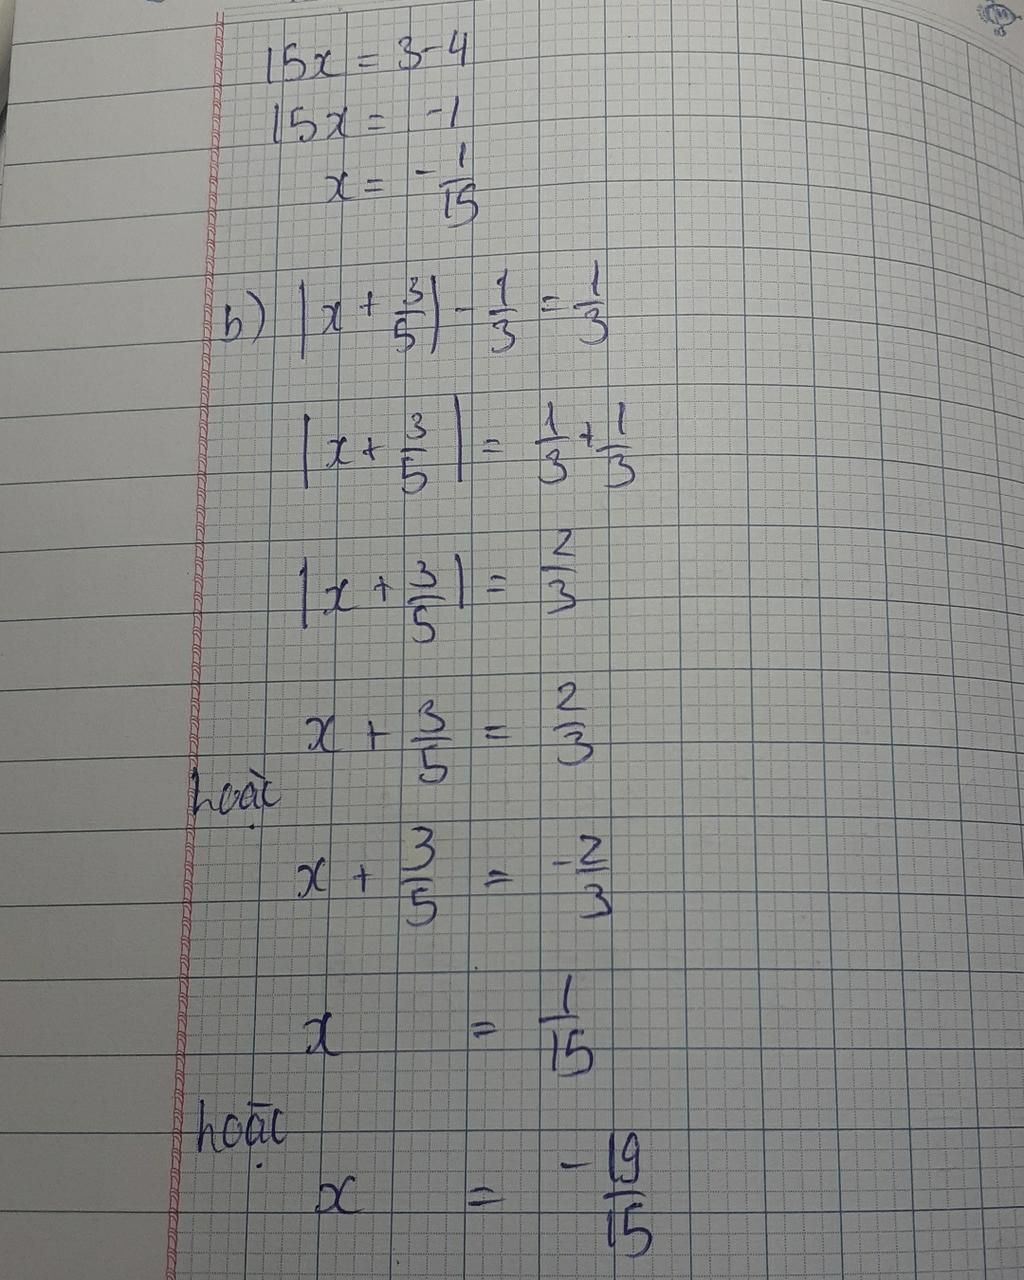 15x = 3-4
15x = -1
x = -1/15
b) |x + 3/5| - 1/3 = 1/3
|x + 3/5| = 1/3 + 1/3
|x + 3/5| = 2/3
x + 3/5 = 2/3
hoặc
x + 3/5 = -2/3
x = 1/15
hoặc
x = -19/15